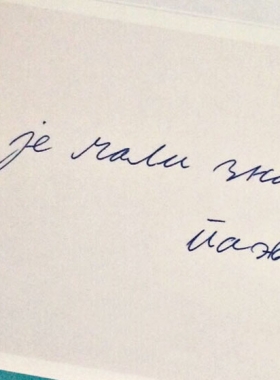 је мали зна
паж